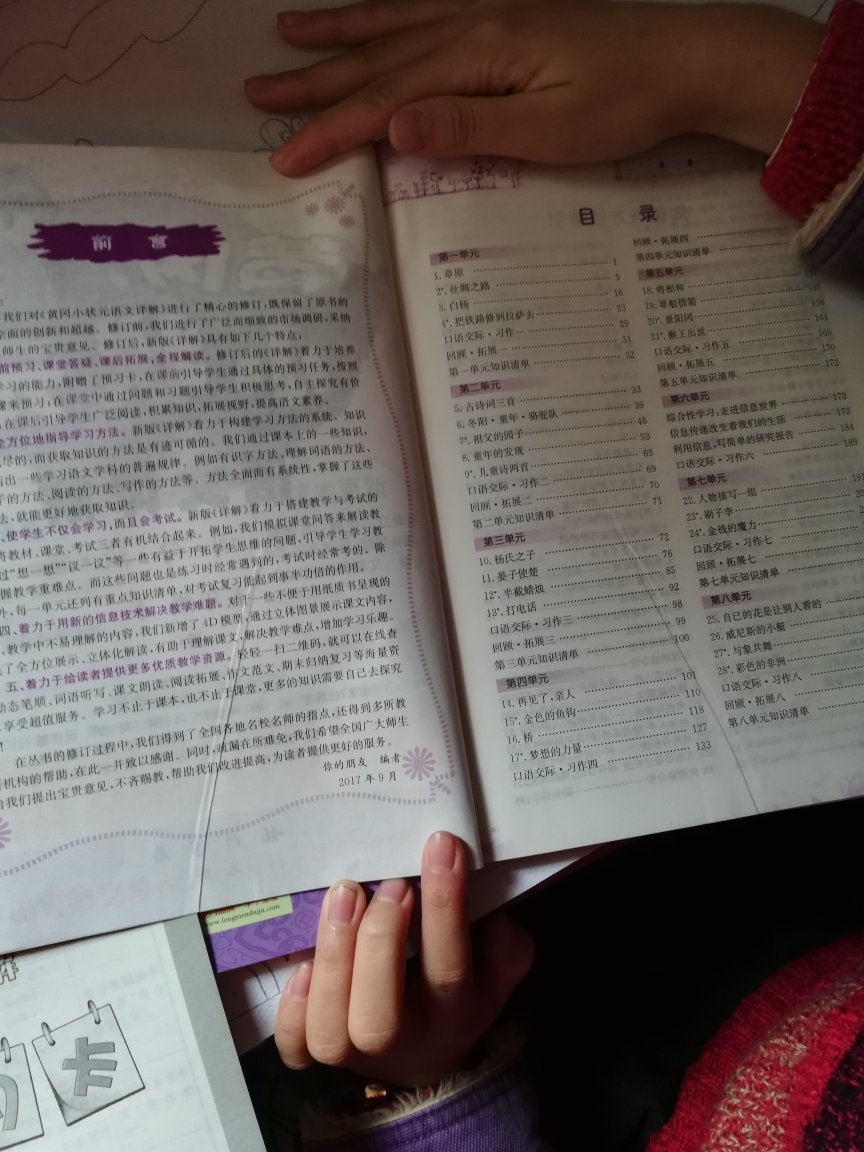 前 言
我们对《黄冈小状元语文详解》进行了精心的修订，既保留了原书的
全面的创新和超越。修订前，我们进行了广泛而细致的市场调研，采纳
师生的宝贵意见。修订后，新版《详解》具有如下几个特点：
前预习、课堂答疑、课后拓展，全程解读。修订后的《详解》着力于培养
习的能力，附赠了预习卡，在课前引导学生通过具体的预习任务，按照
课来预习；在课堂中通过问题和习题引导学生积极思考，自主探究有价
在课后引导学生广泛阅读，积累知识，拓展视野，提高语文素养。
全方位地指导学习方法。新版《详解》着力于构建学习方法的系统。知识
尽的，而获取知识的方法是有迹可循的。我们通过课本上的一些知识，
出一些学习语文学科的普遍规律。例如有识字方法、理解词语的方法、
子的方法、阅读的方法、写作的方法等。方法全面而有系统性，掌握了这些
法，就能更好地获取知识。
使学生不仅会学习，而且会考试。新版《详解》着力于搭建教学与考试的
将教材、课堂、考试三者有机结合起来。例如，我们模拟课堂问答来解读教
过“想一想”“议一议”等一些有益于开拓学生思维的问题，引导学生学习教
握教学重难点。而这些问题也是练习时经常遇到的，考试时经常考的。除
外，每一单元还列有重点知识清单，对考试复习能起到事半功倍的作用。
四、着力于用新的信息技术解决教学难题。对于一些不便于用纸质书呈现的
教学中不易理解的内容，我们新增了4D模型，通过立体图景展示课文内容，
了全方位展示、立体化解读，有助于理解课文，解决教学难点，增加学习乐趣。
五、着力于给读者提供更多优质教学资源。轻轻一扫二维码，就可以在线查
动态笔顺、词语听写、课文朗读、阅读拓展、作文范文、期末归纳复习等海量资
享受超值服务。学习不止于课本，也不止于课堂，更多的知识需要自己去探究
！
在丛书的修订过程中，我们得到了全国各地名校名师的指点，还得到多所教
机构的帮助，在此一并致以感谢。同时，疏漏在所难免，我们希望全国广大师生
给我们提出宝贵意见，不吝赐教，帮助我们改进提高，为读者提供更好的服务。
你的朋友 编者
2017年9月
目 录
第一单元
1.草原 1
2*.丝绸之路 9
3.白杨 16
4*.把铁路修到拉萨去 23
口语交际·习作一 29
回顾·拓展一 31
第一单元知识清单 32
第二单元
5.古诗词三首 33
6.冬阳·童年·骆驼队 39
7*.祖父的园子 46
8.童年的发现 53
9*.儿童诗两首 63
口语交际·习作二 69
回顾·拓展二 70
第二单元知识清单 71
第三单元
10.杨氏之子 72
11.晏子使楚 76
12*.半截蜡烛 85
13*.打电话 92
口语交际·习作三 98
回顾·拓展三 99
第三单元知识清单 100
第四单元
14.再见了，亲人 101
15*.金色的鱼钩 110
16.桥 118
17*.梦想的力量 127
口语交际·习作四 133
回顾·拓展四
第四单元知识清单
第五单元
18.将相和
19.草船借箭
20*.景阳冈 156
21*.猴王出世 164
口语交际·习作五 169
回顾·拓展五 170
第五单元知识清单 172
第六单元
综合性学习：走进信息世界 173
信息传递改变着我们的生活 173
利用信息，写简单的研究报告 184
口语交际·习作六 189
第七单元
22.人物描写一组 191
23*.刷子李
24*.金钱的魔力
口语交际·习作七
回顾·拓展七
第七单元知识清单
第八单元
25.自己的花是让别人看的
26.威尼斯的小艇
27*.与象共舞
28*.彩色的非洲
口语交际·习作八
回顾·拓展八
第八单元知识清单
www.longmenshuju.com
卡